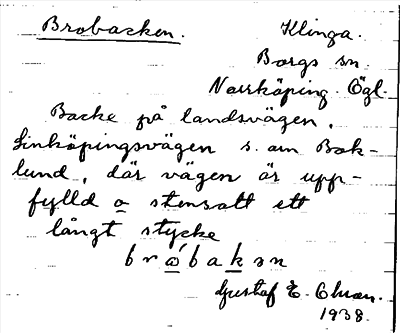 Brobacken. Klinga.
Borgs sn.
Norrköping. Ögl.
Backe på landsvägen,
Linköpingsvägen s. om Bok-
lund, där vägen är upp-
fylld o stensatt ett
långt stycke
bròbakən
Gustaf E. Ohson.
1938.